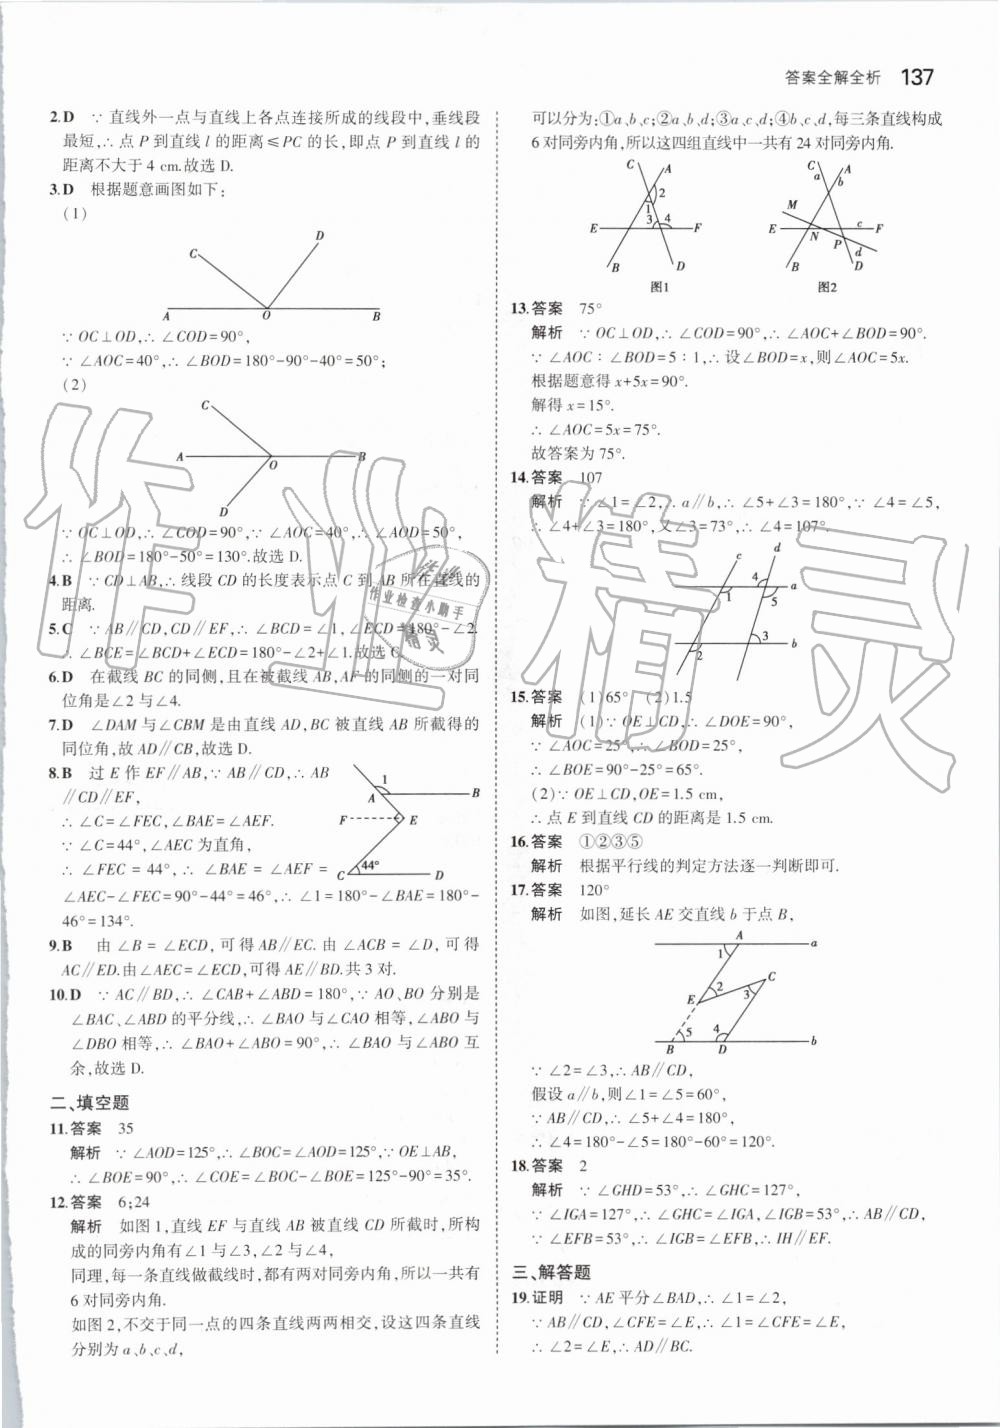 答案全解全析 137
2.D ∵ 直线外一点与直线上各点连接所成的线段中,垂线段
最短,∴ 点 P 到直线 l 的距离≤PC 的长,即点 P 到直线 l 的
距离不大于 4 cm.故选 D.
3.D 根据题意画图如下:
(1)
C D
A O B
∵ OC⊥OD,∴ ∠COD=90°,
∵ ∠AOC=40°,∴ ∠BOD=180°-90°-40°=50°;
(2)
C
A O B
D
∵ OC⊥OD,∴ ∠COD=90°,∵ ∠AOC=40°,∴ ∠AOD=50°,
∴ ∠BOD=180°-50°=130°.故选 D.
4.B ∵CD⊥AB,∴线段 CD 的长度表示点 C 到 AB 所在直线的
距离.
5.C ∵AB∥CD,CD∥EF,∴ ∠BCD=∠1,∠ECD=180°-∠2.
∴ ∠BCE=∠BCD+∠ECD=180°-∠2+∠1.故选 C.
6.D 在截线 BC 的同侧,且在被截线 AB,AF 的同侧的一对同
位角是∠2与∠4.
7.D ∠DAM 与∠CBM 是由直线 AD,BC 被直线 AB 所截得的
同位角,故 AD∥CB,故选 D.
8.B 过 E 作 EF∥AB,∵ AB∥CD,∴ AB
∥CD∥EF,
∴ ∠C=∠FEC,∠BAE=∠AEF.
∵ ∠C=44°,∠AEC 为直角,
∴ ∠FEC = 44°,∴ ∠BAE = ∠AEF =
1
A B
F E
C 44° D
∠AEC-∠FEC=90°-44°=46°,∴ ∠1=180°-∠BAE=180°-
46°=134°.
9.B 由 ∠B = ∠ECD,可得 AB∥EC.由 ∠ACB = ∠D,可得
AC∥ED.由∠AEC=∠ECD,可得 AE∥BD.共 3 对.
10.D ∵ AC∥BD,∴ ∠CAB+∠ABD=180°,∵ AO、BO 分别是
∠BAC、∠ABD 的平分线,∴ ∠BAO 与∠CAO 相等,∠ABO 与
∠DBO 相等,∴ ∠BAO+∠ABO=90°,∴ ∠BAO 与∠ABO 互
余,故选 D.
二、填空题
11.答案 35
解析 ∵ ∠AOD=125°,∴ ∠BOC=∠AOD=125°,∵ OE⊥AB,
∴ ∠BOE=90°,∴ ∠COE=∠BOC-∠BOE=125°-90°=35°.
12.答案 6;24
解析 如图 1,直线 EF 与直线 AB 被直线 CD 所截时,所构
成的同旁内角有∠1与∠3,∠2与∠4,
同理,每一条直线做截线时,都有两对同旁内角,所以一共有
6 对同旁内角.
如图 2,不交于同一点的四条直线两两相交,设这四条直线
分别为 a、b、c、d,
可以分为:①a、b、c;②a、b、d;③a、c、d;④b、c、d,每三条直线构成
6 对同旁内角,所以这四组直线中一共有 24 对同旁内角.
C A
2
1
3 4
E F
B D
图1
C A
a b
M
E N c F
P d
B D
图2
13.答案 75°
解析 ∵ OC⊥OD,∴ ∠COD=90°,∴ ∠AOC+∠BOD=90°.
∵ ∠AOC∶∠BOD=5∶1,∴ 设∠BOD=x,则∠AOC=5x.
根据题意得 x+5x=90°.
解得 x=15°.
∴ ∠AOC=5x=75°.
故答案为 75°.
14.答案 107
解析 ∵ ∠1=∠2,∴ a∥b,∴ ∠5+∠3=180°,∵ ∠4=∠5,
∴ ∠4+∠3=180°,又∠3=73°,∴ ∠4=107°.
c d
4 a
1 5
3 b
2
15.答案 (1)65° (2)1.5
解析 (1)∵ OE⊥CD,∴ ∠DOE=90°,
∵ ∠AOC=25°,∴ ∠BOD=25°,
∴ ∠BOE=90°-25°=65°.
(2)∵ OE⊥CD,OE=1.5 cm,
∴ 点 E 到直线 CD 的距离是 1.5 cm.
16.答案 ①②③⑤
解析 根据平行线的判定方法逐一判断即可.
17.答案 120°
解析 如图,延长 AE 交直线 b 于点 B,
A a
1
C
2 3
E
5 4
B D b
∵ ∠2=∠3,∴ AB∥CD,
假设 a∥b,则∠1=∠5=60°,
∵ AB∥CD,∴ ∠5+∠4=180°,
∴ ∠4=180°-∠5=180°-60°=120°.
18.答案 2
解析 ∵ ∠GHD=53°,∴ ∠GHC=127°,
∵ ∠IGA=127°,∴ ∠GHC=∠IGA,∠IGB=53°,∴ AB∥CD,
∵ ∠EFB=53°,∴ ∠IGB=∠EFB,∴ IH∥EF.
三、解答题
19.证明 ∵ AE 平分∠BAD,∴ ∠1=∠2,
∵ AB∥CD,∠CFE=∠E,∴ ∠1=∠CFE=∠E,
∴ ∠2=∠E,∴ AD∥BC.
作业精灵
作业检查小助手
精灵